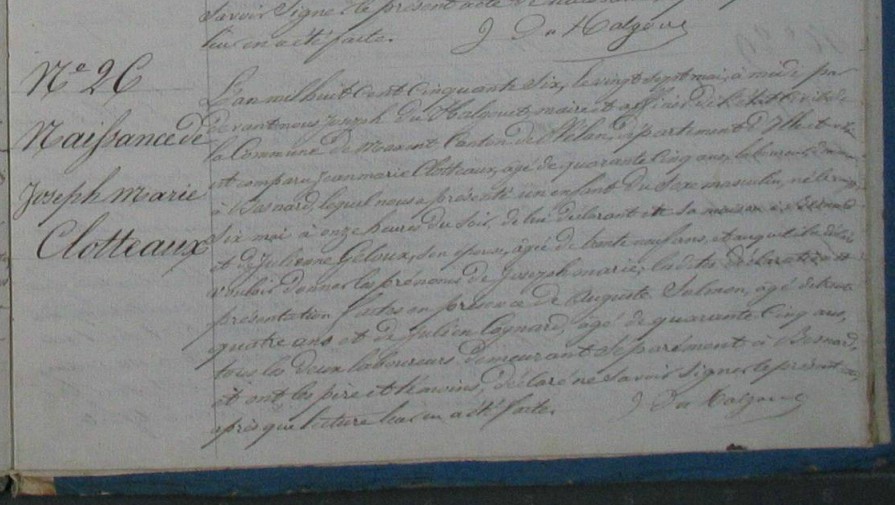 savoir signer le présent acte
lui en a été faite. J Du Halgouet
N° 26
Naissance de
Joseph Marie
Clotteaux
L'an mil huit cent cinquante six, le vingt sept mai, à midi, par
devant nous Joseph Du Halgouet, maire et officier de l'état civil de
la Commune de canton de département d'Ille et
est comparu Jean marie Clotteaux, âgé de quarante cinq ans, laboureur,
à Besnard, lequel nous a présenté un enfant du sexe masculin, né le vingt
six mai à onze heures du soir, de lui déclarant et sa maison à Besnard
et de Julienne Geloux, son épouse, âgée de trente neuf ans, et auquel il a déclaré
vouloir donner les prénoms de Joseph marie; la dite déclaration et
présentation faites en présence de Auguste Salmon, âgé de trente
quatre ans et de Julien Cognard, âgé de quarante cinq ans,
tous les deux laboureurs demeurant séparément à Besnard,
et ont les père et témoins, déclaré ne savoir signer le présent acte,
après que lecture leur en a été faite. J Du Halgouet